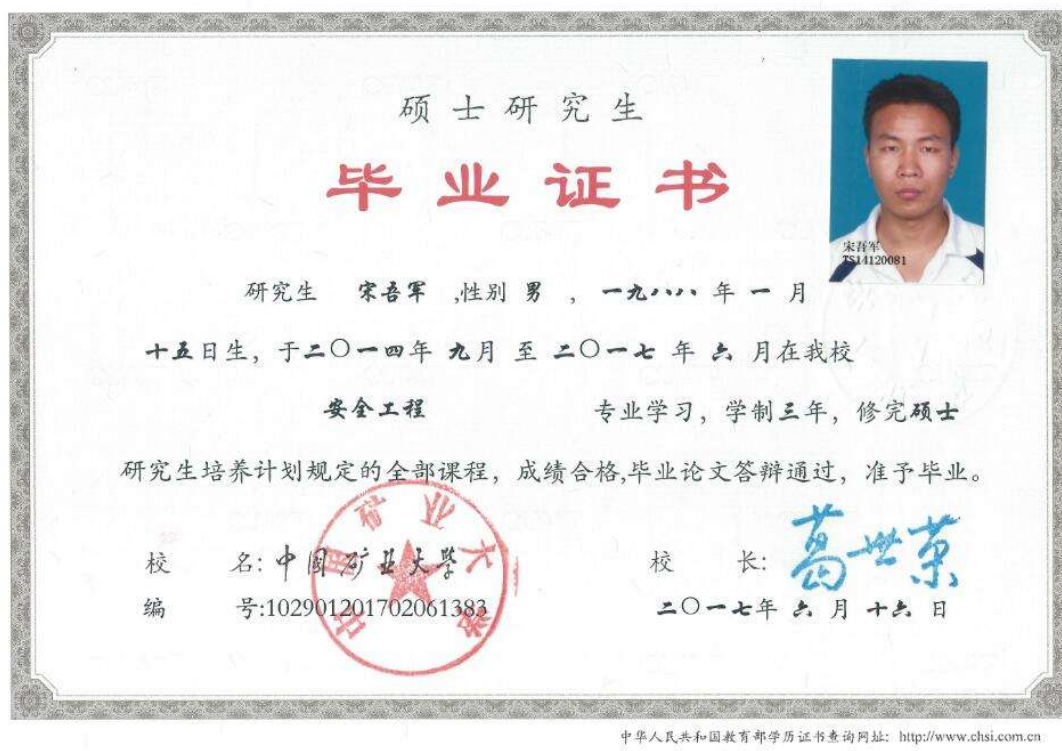 硕士研究生
毕业证书
宋吾军
TS14120081
研究生 宋吾军 ,性别 男 , 一九八八 年 一 月
十五日生, 于二〇一四年 九月 至 二〇一七 年 六 月在我校
安全工程 专业学习, 学制三年, 修完硕士
研究生培养计划规定的全部课程, 成绩合格,毕业论文答辩通过, 准予毕业。
中国矿业大学
校 名: 中国矿业大学 校 长: 葛世荣
编 号:102901201702061383 二〇一七年 六 月 十六 日
中华人民共和国教育部学历证书查询网址: http://www.chsi.com.cn